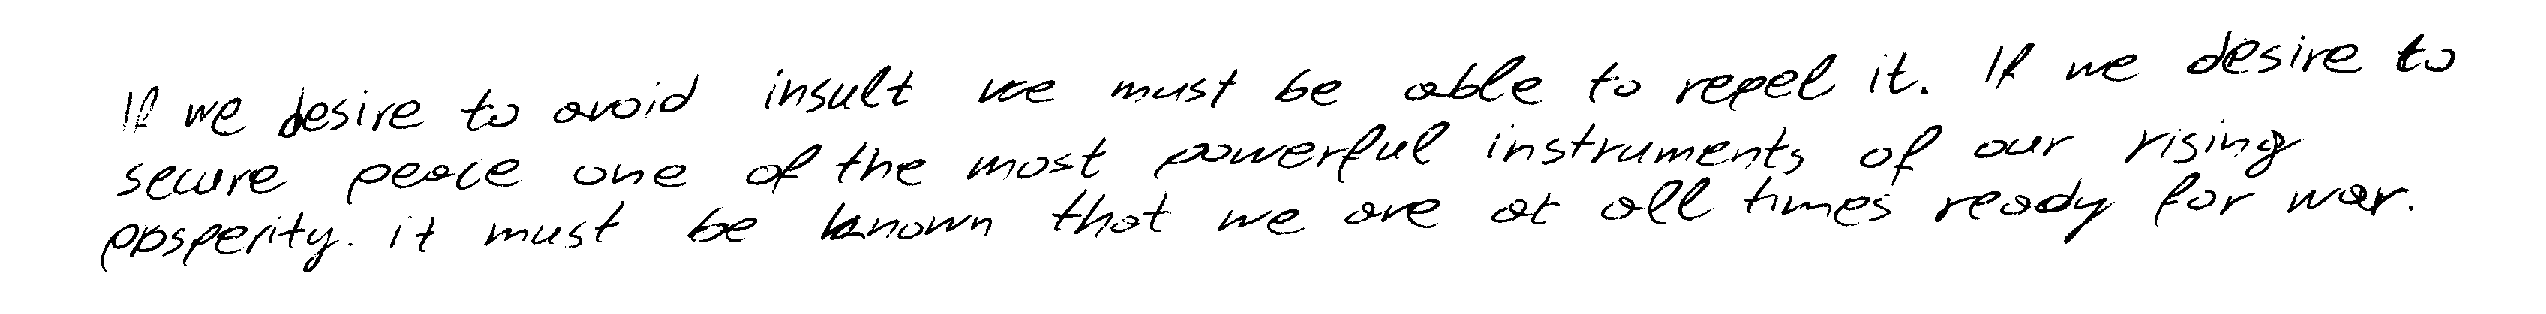 If we desire to avoid insult we must be able to repel it. If we desire to
secure peace one of the most powerful instruments of our rising
ppsperity. it must be known that we are at all times ready for war.